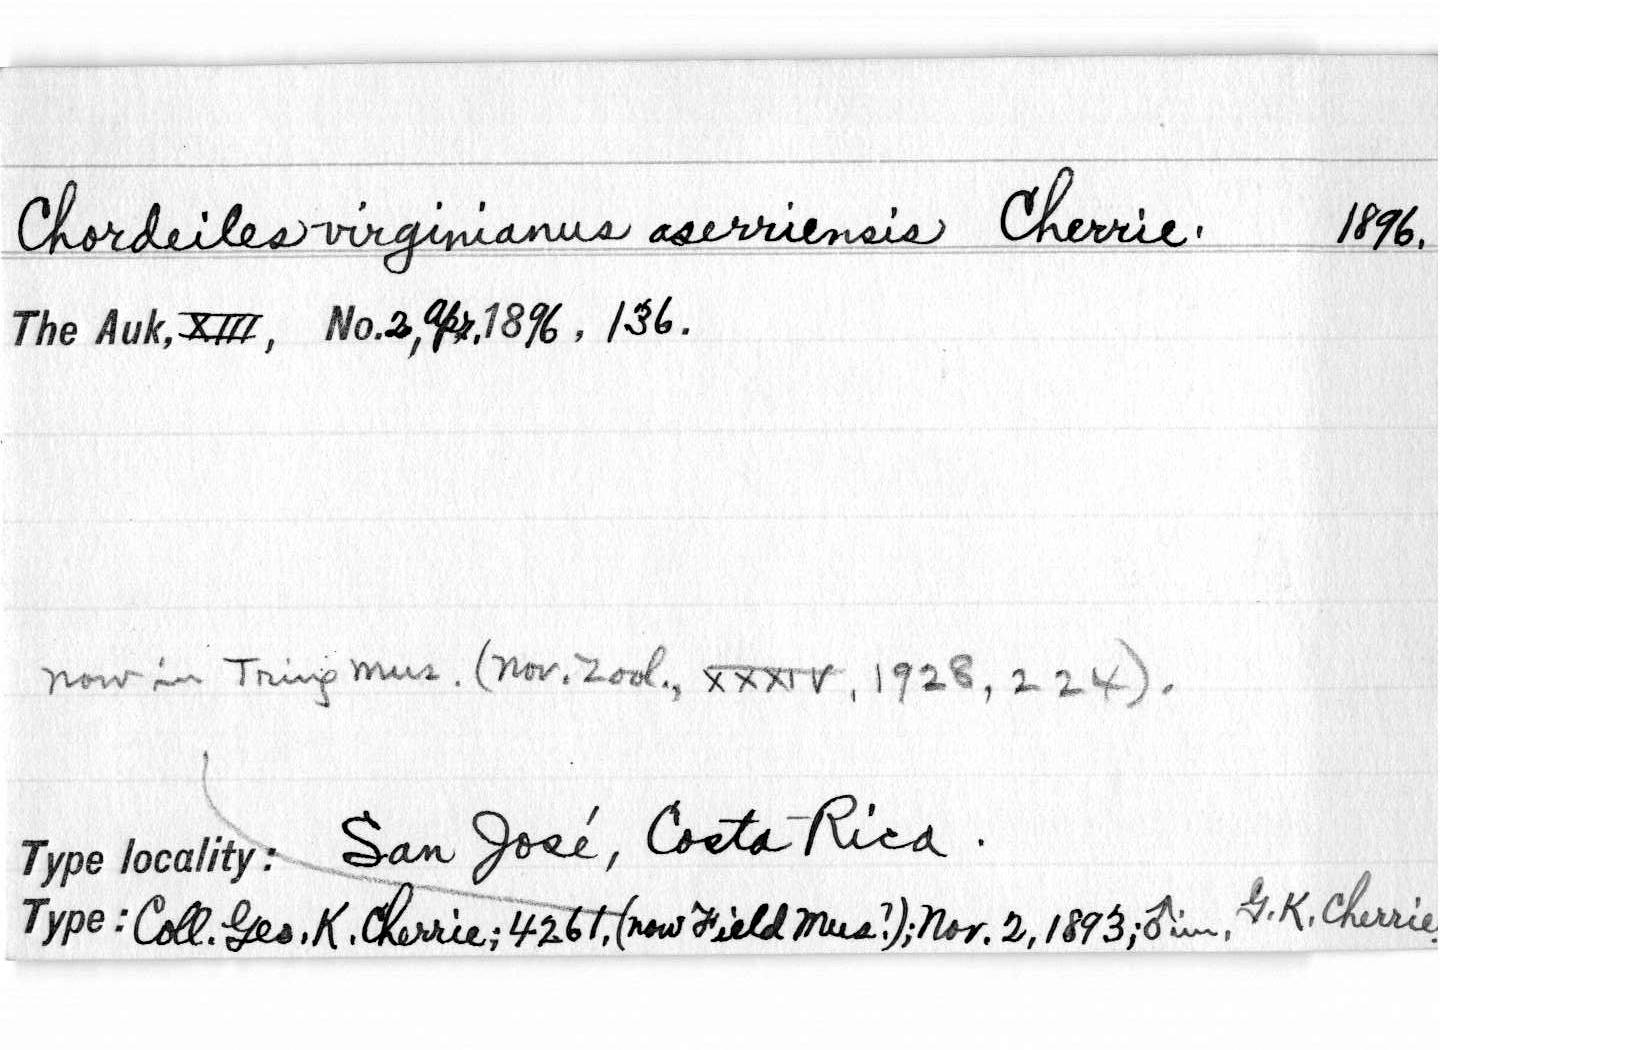 Chordeiles virginianus aserriensis Cherrie. 1896.
The Auk, XIII, No. 2, Apr. 1896, 136.
now in Tring Mus. (Nov. Zool., XXXIV, 1928, 224).
Type locality: San José, Costa Rica.
Type: Coll. Geo. K. Cherrie; 4261, (now Field Mus?); Nov. 2, 1893; ♂ im, G. K. Cherrie.